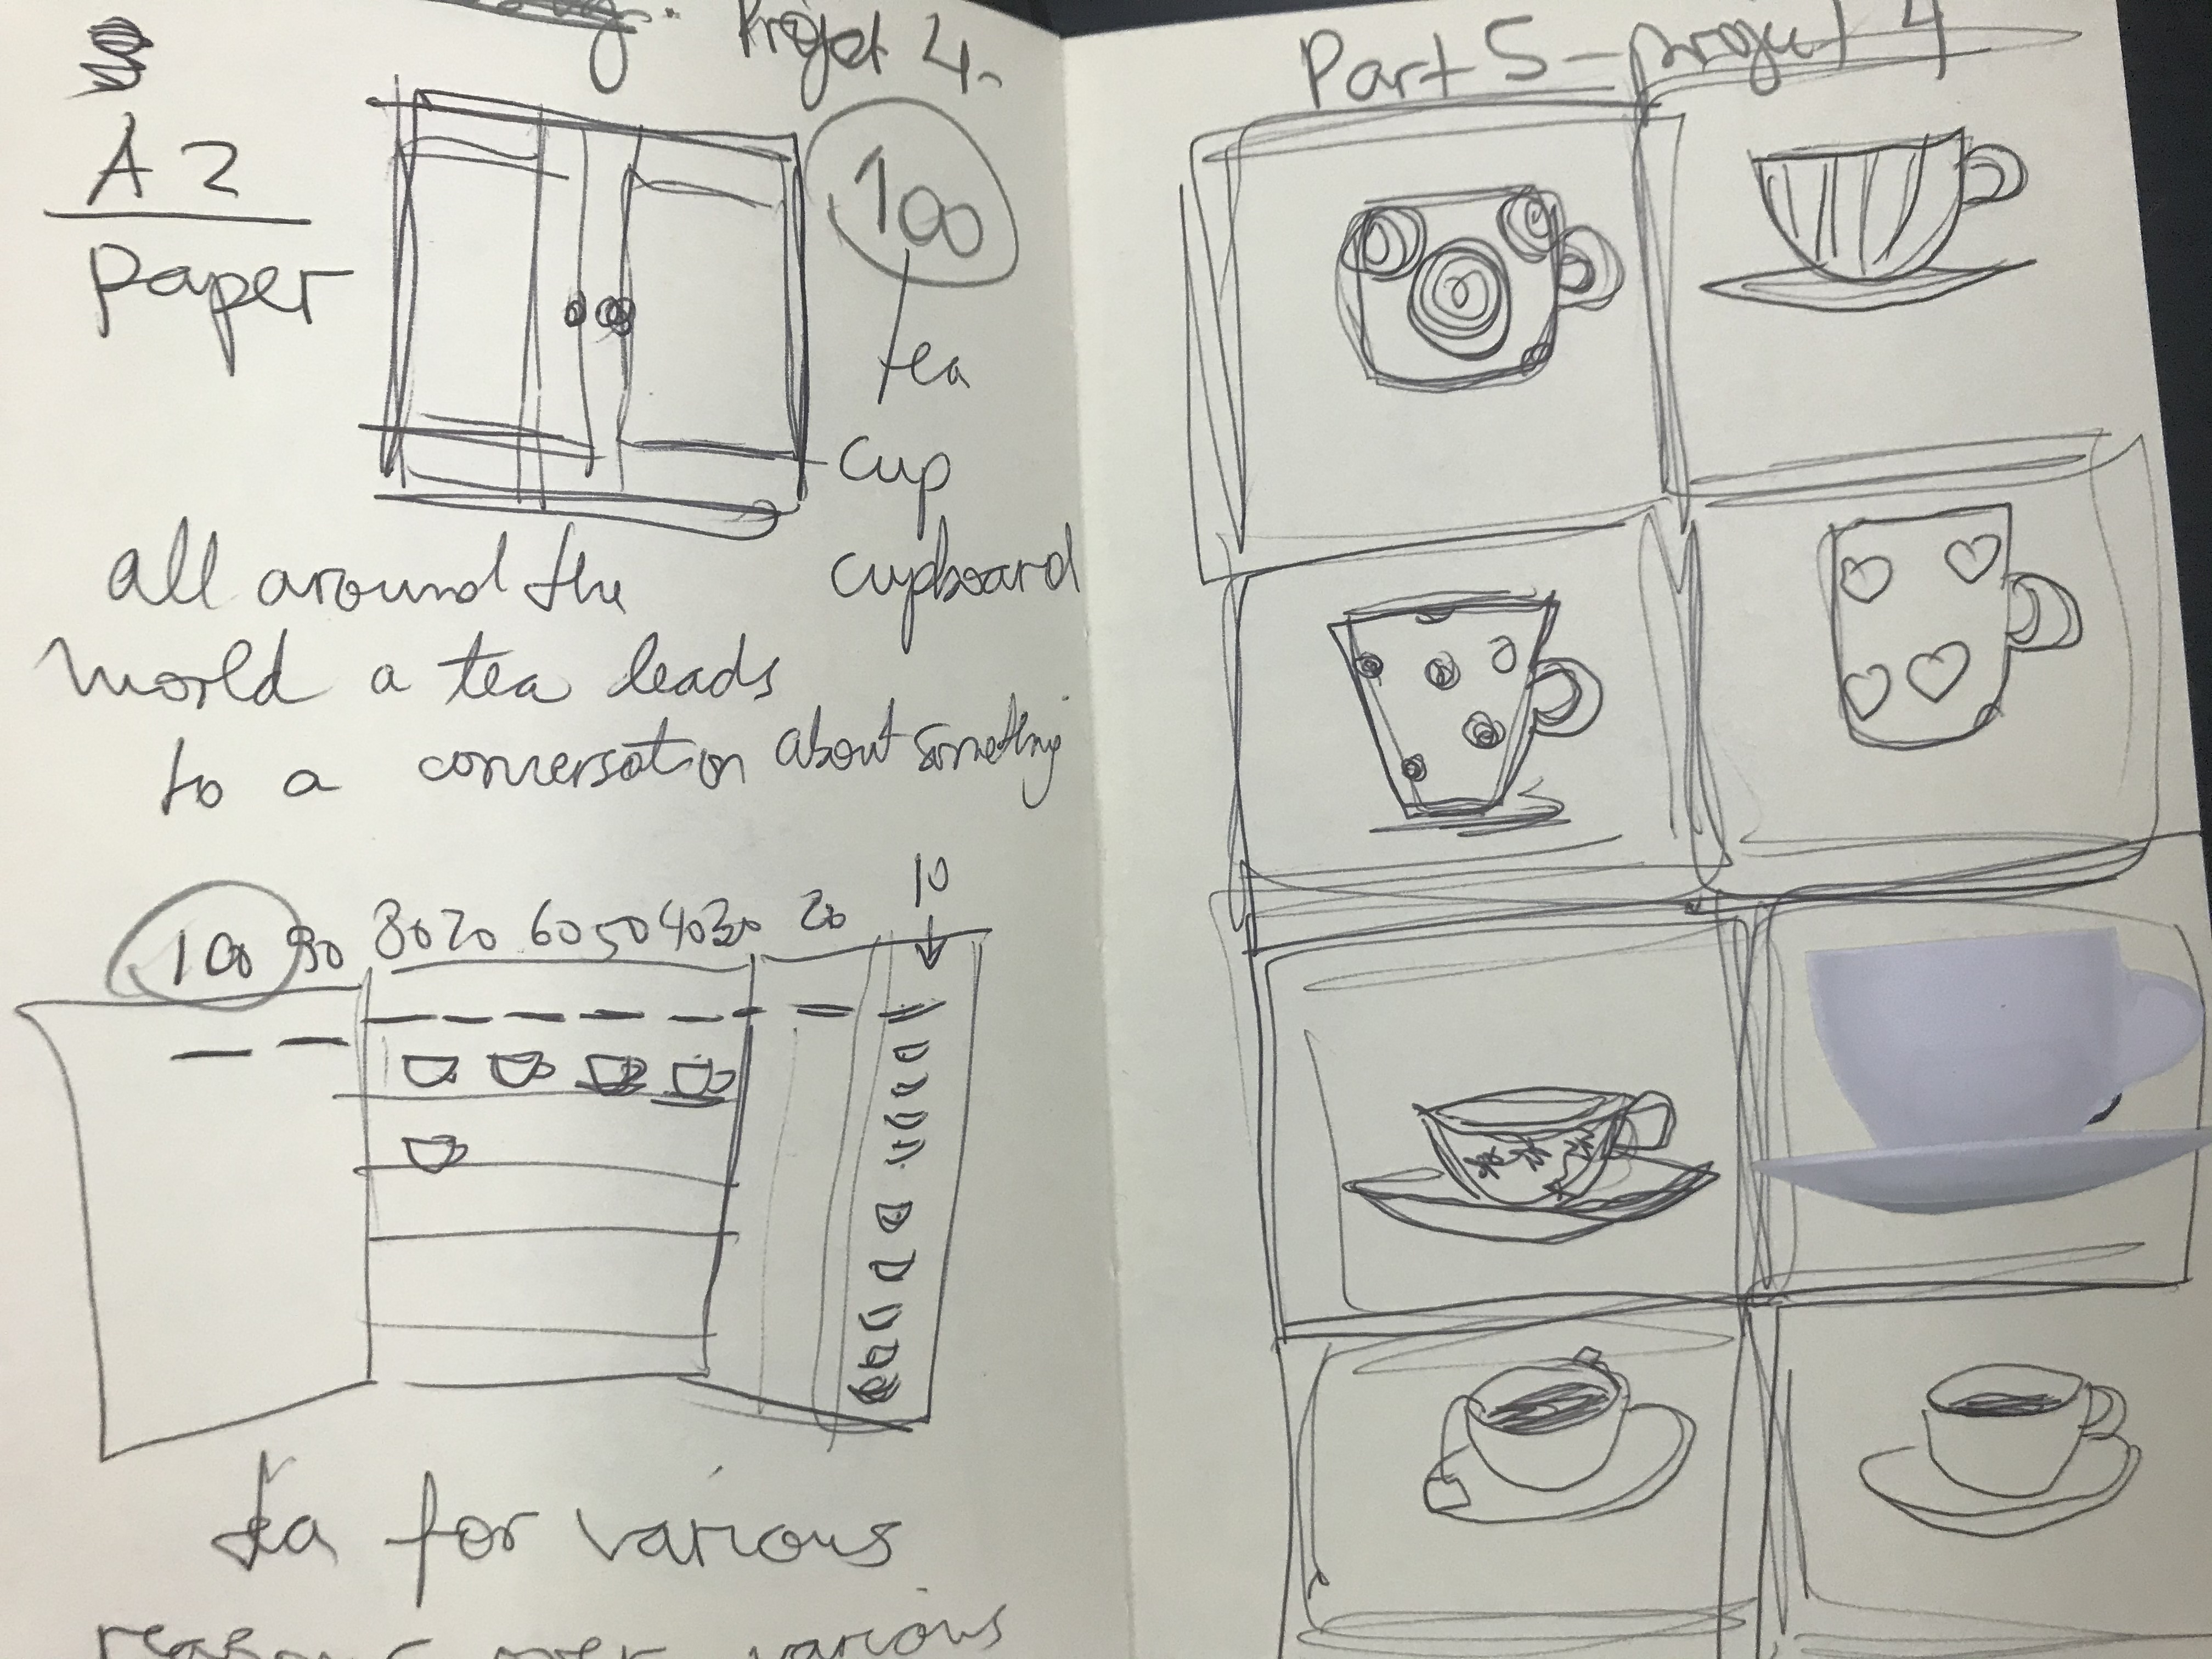 Projet 4.
A2
paper
100
tea
cup
cupboard
all around the
world a tea leads
to a conversation about something
10
100 90 80 70 60 50 40 30 20
tea for various
reasons over various
Part 5 - project 4